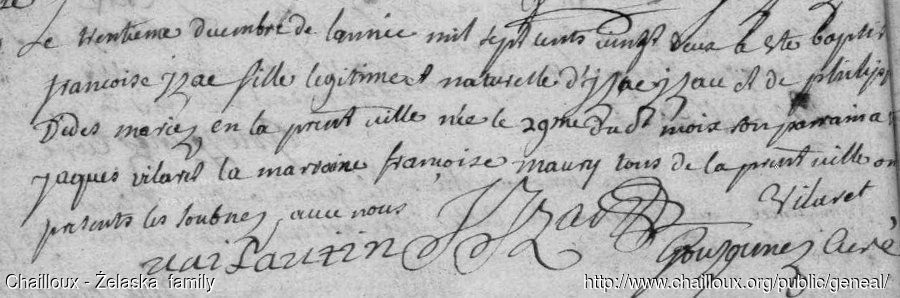 Le trentieme decembre de lannée mil sept cents vingt deux a este baptis
francoise jzac fille legitime et naturelle d'jzac jzac et de philip
Dedes mariez en la pnt ville née le 29me du dt mois son parrain a
jaques vilaret la marraine françoise maury tous de la pnt ville on
presents les soubnez avec nous
Vilaret
Jzac
curé
Chailloux - Żelaska family
http://www.chailloux.org/public/geneal/